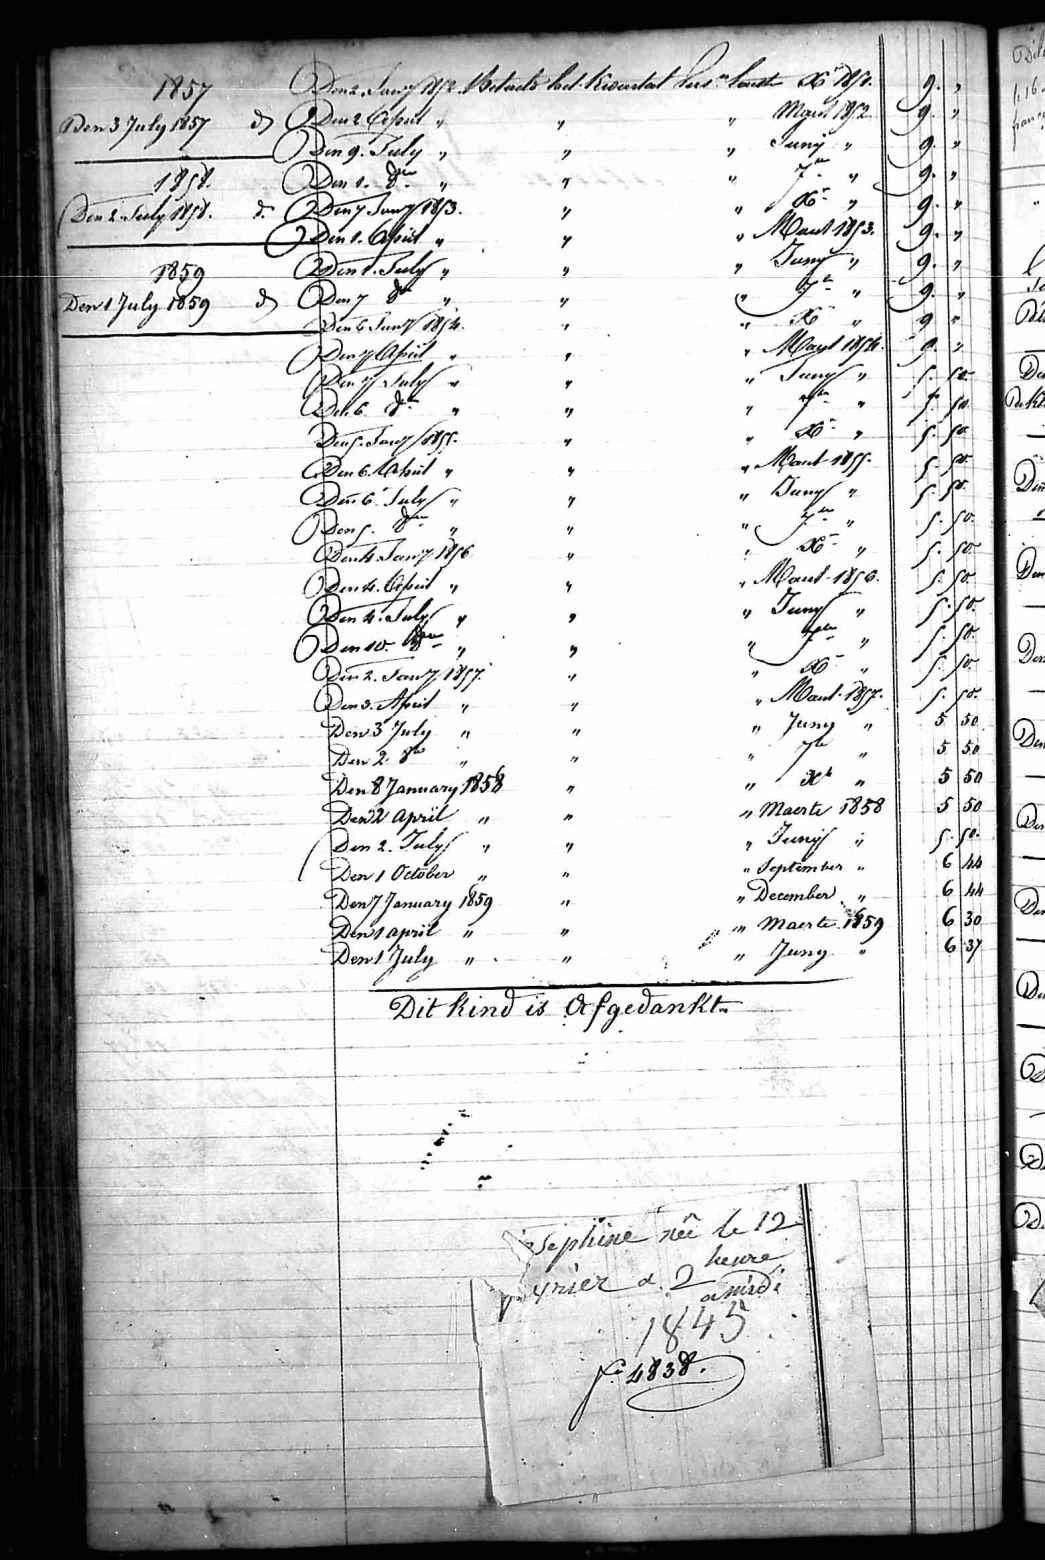 1857
Den 3 July 1857 d
1858.
Den 2 July 1858. d
1859
Den 1 July 1859 d
Den 2. Janry 1852. Betaelt het kwartaal X 1851. 9. "
Den 2. April " " " Maart 1852 9. "
Den 9. July " " " Juny " 9. "
Den 1. 8ber " " " 7ber " 9. "
Den 7 Janry 1853. " " Xr " 9. "
Den 1. April " " " Maart 1853. 9. "
Den 1. July " " " Juny " 9. "
Den 7 8br " " " 7br " 9. "
Den 6 Janry 1854. " " Xr " 9 "
Den 7 April " " " Maart 1854. 9. "
Den 7 July " " " Juny " 5. 50.
Den 6. 8br " " " 7ber " 5. 50.
Den 5. Janry 1855. " " Xr " 5. 50.
Den 6. April " " " Maart 1855. 5. 50.
Den 6 July " " " Juny " 5. 50.
Den 5. 8ber " " " 7ber " 5. 50.
Den 4 Janry 1856 " " Xr " 5. 50.
Den 4. April " " " Maart 1856. 5. 50.
Den 4. July " " " Juny " 5. 50.
Den 10. 8ber " " " 7ber " 5. 50.
Den 2. Janry 1857. " " Xr " 5. 50.
Den 3. April " " " Maart 1857. 5. 50.
Den 3 July " " " Juny " 5 50
Den 2. 8br " " " 7br " 5 50
Den 8 January 1858 " " Xb " 5 50
Den 2 april " " " Maerte 1858 5 50
Den 2. July " " " Juny " 5. 50.
Den 1 October " " " September " 6 44
Den 7 January 1859 " " December " 6 44
Den 1 april " " " Maerte 1859 6 30
Den 1 July " " " Juny " 6 37
Dit kind is Afgedankt
sephine née le 12
vrier a 2 heure
amidi
1845
No 4838.